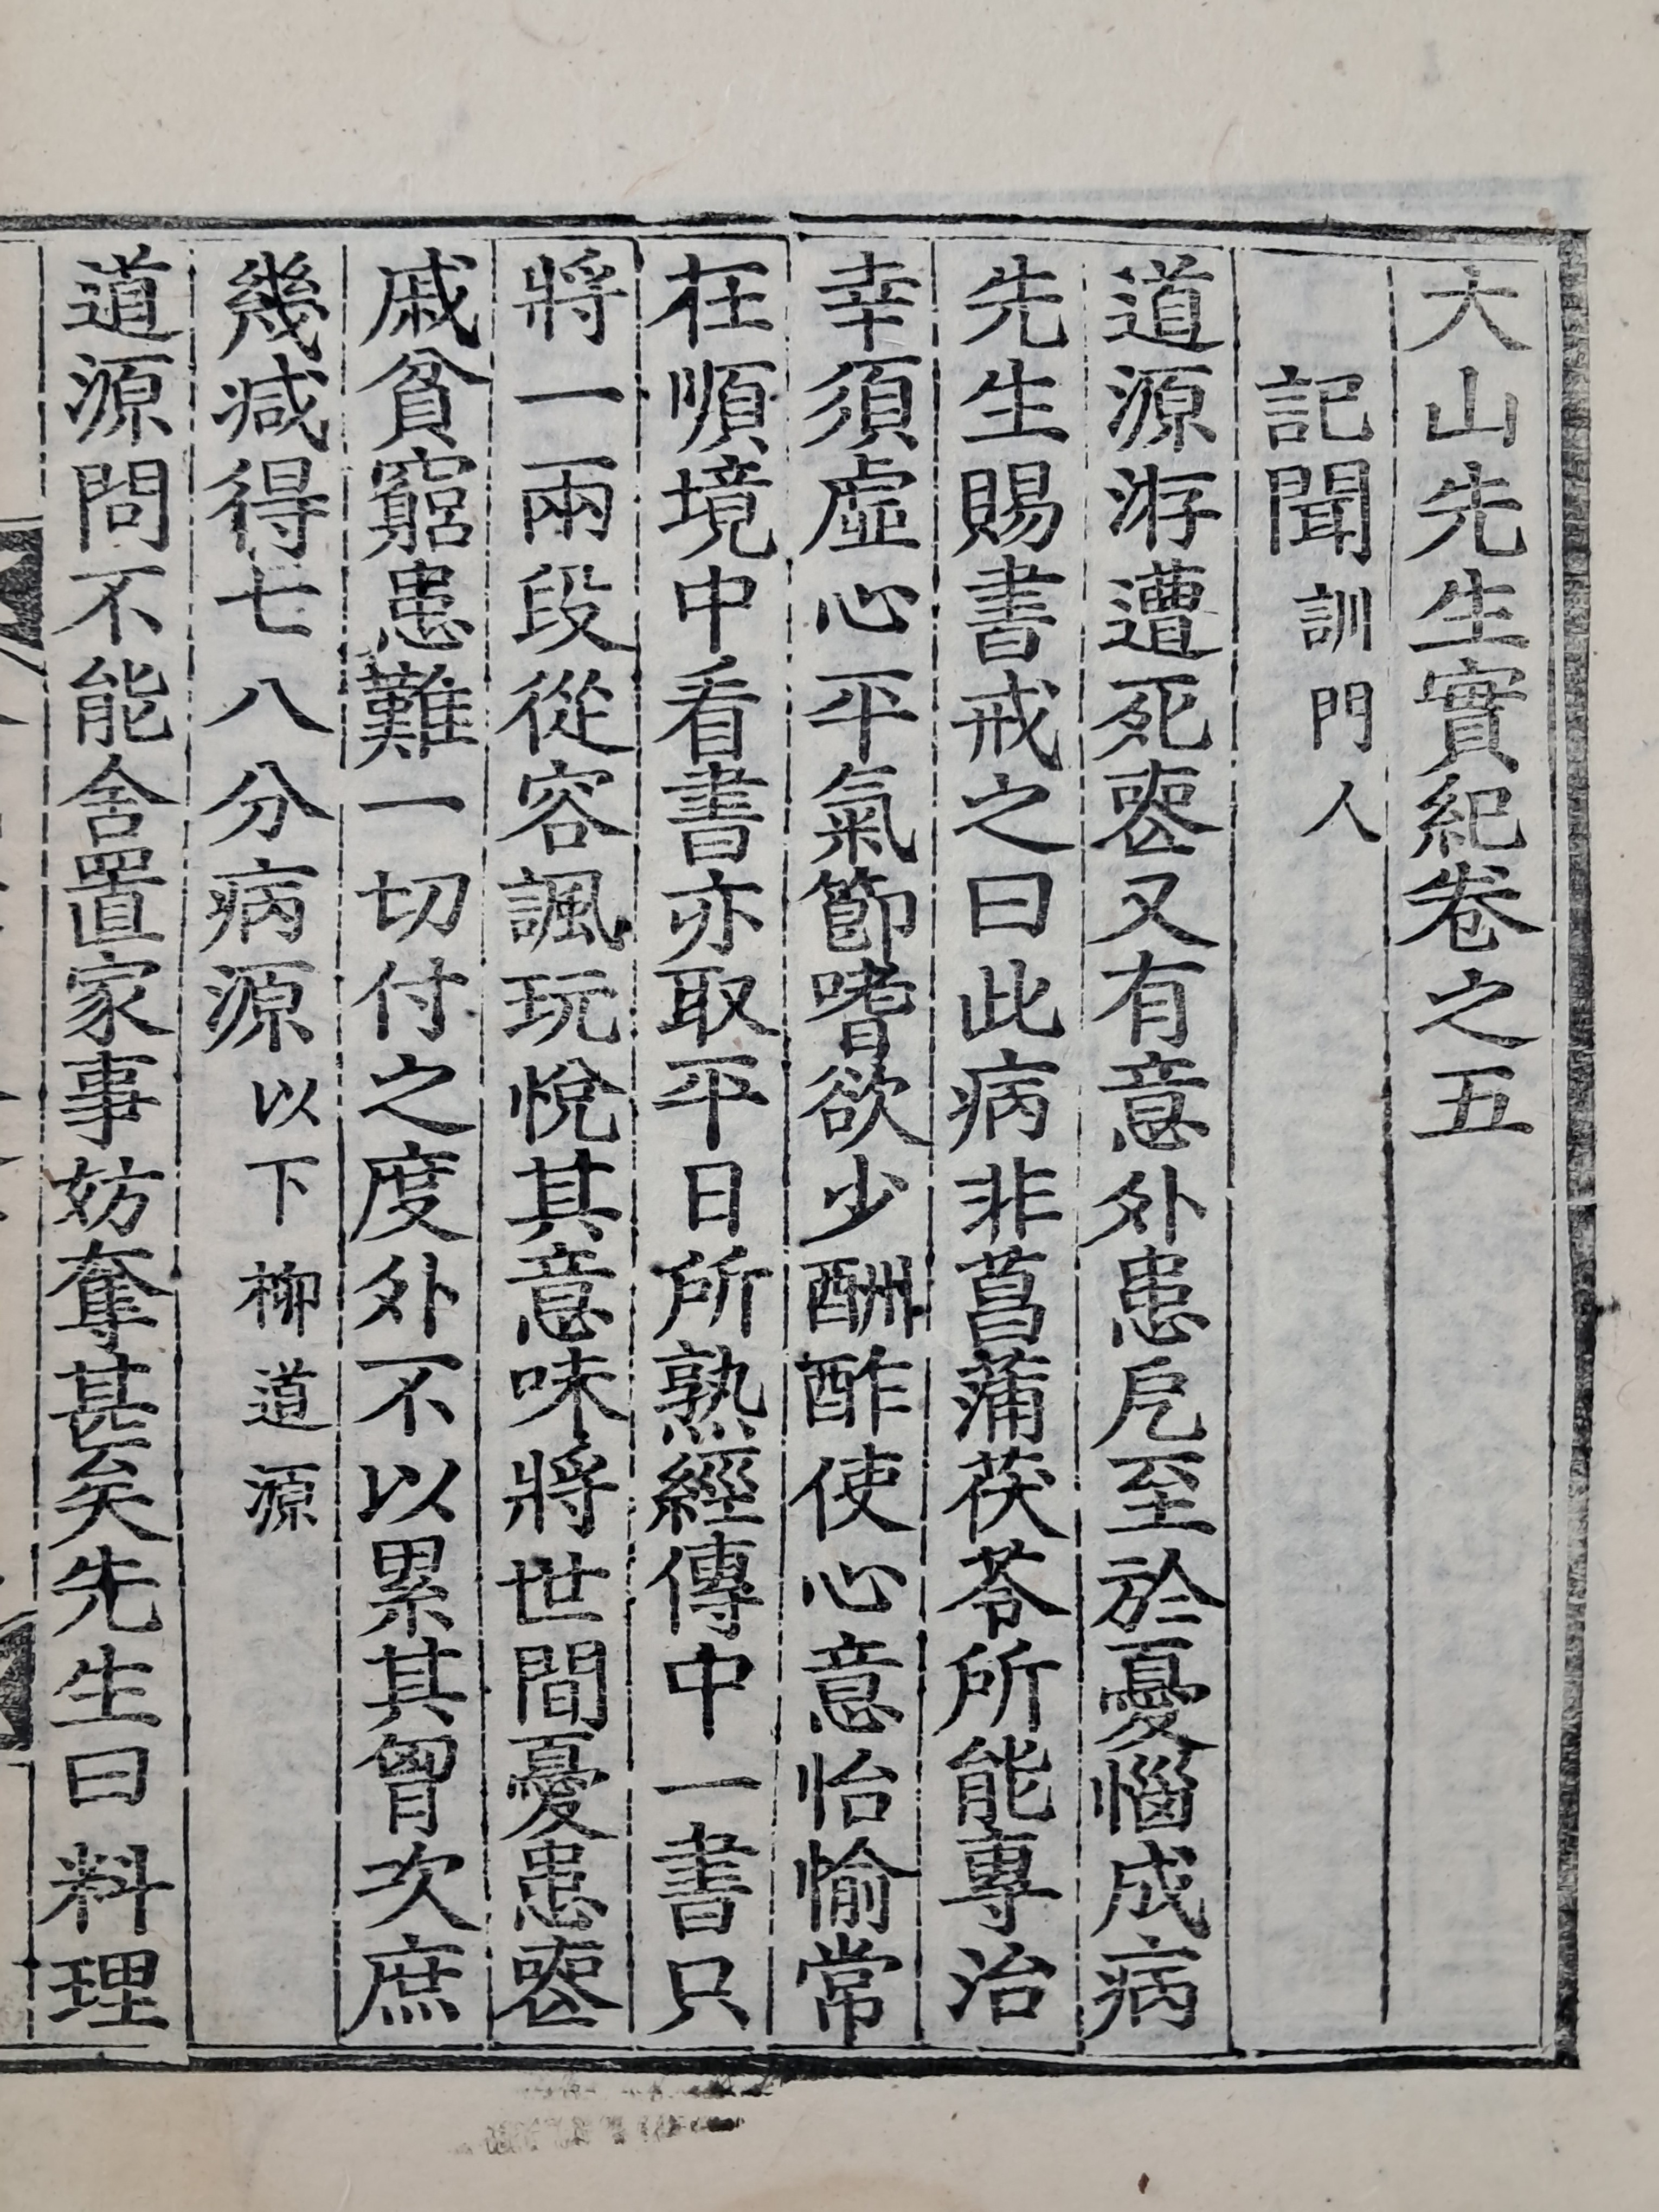 大山先生實紀卷之五
記聞訓門人
道源洊遭死喪又有意外患戹至於憂惱成病
先生賜書戒之曰此病非菖蒲茯苓所能專治
幸須虛心平氣節嗜欲少酬酢使心意怡愉常
在順境中看書亦取平日所熟經傳中一書只
將一兩段從容諷玩悅其意味將世間憂患喪
戚貧窮患難一切付之度外不以累其胷次庶
幾减得七八分病源以下柳道源
道源問不能舍置家事妨奪甚矣先生曰料理